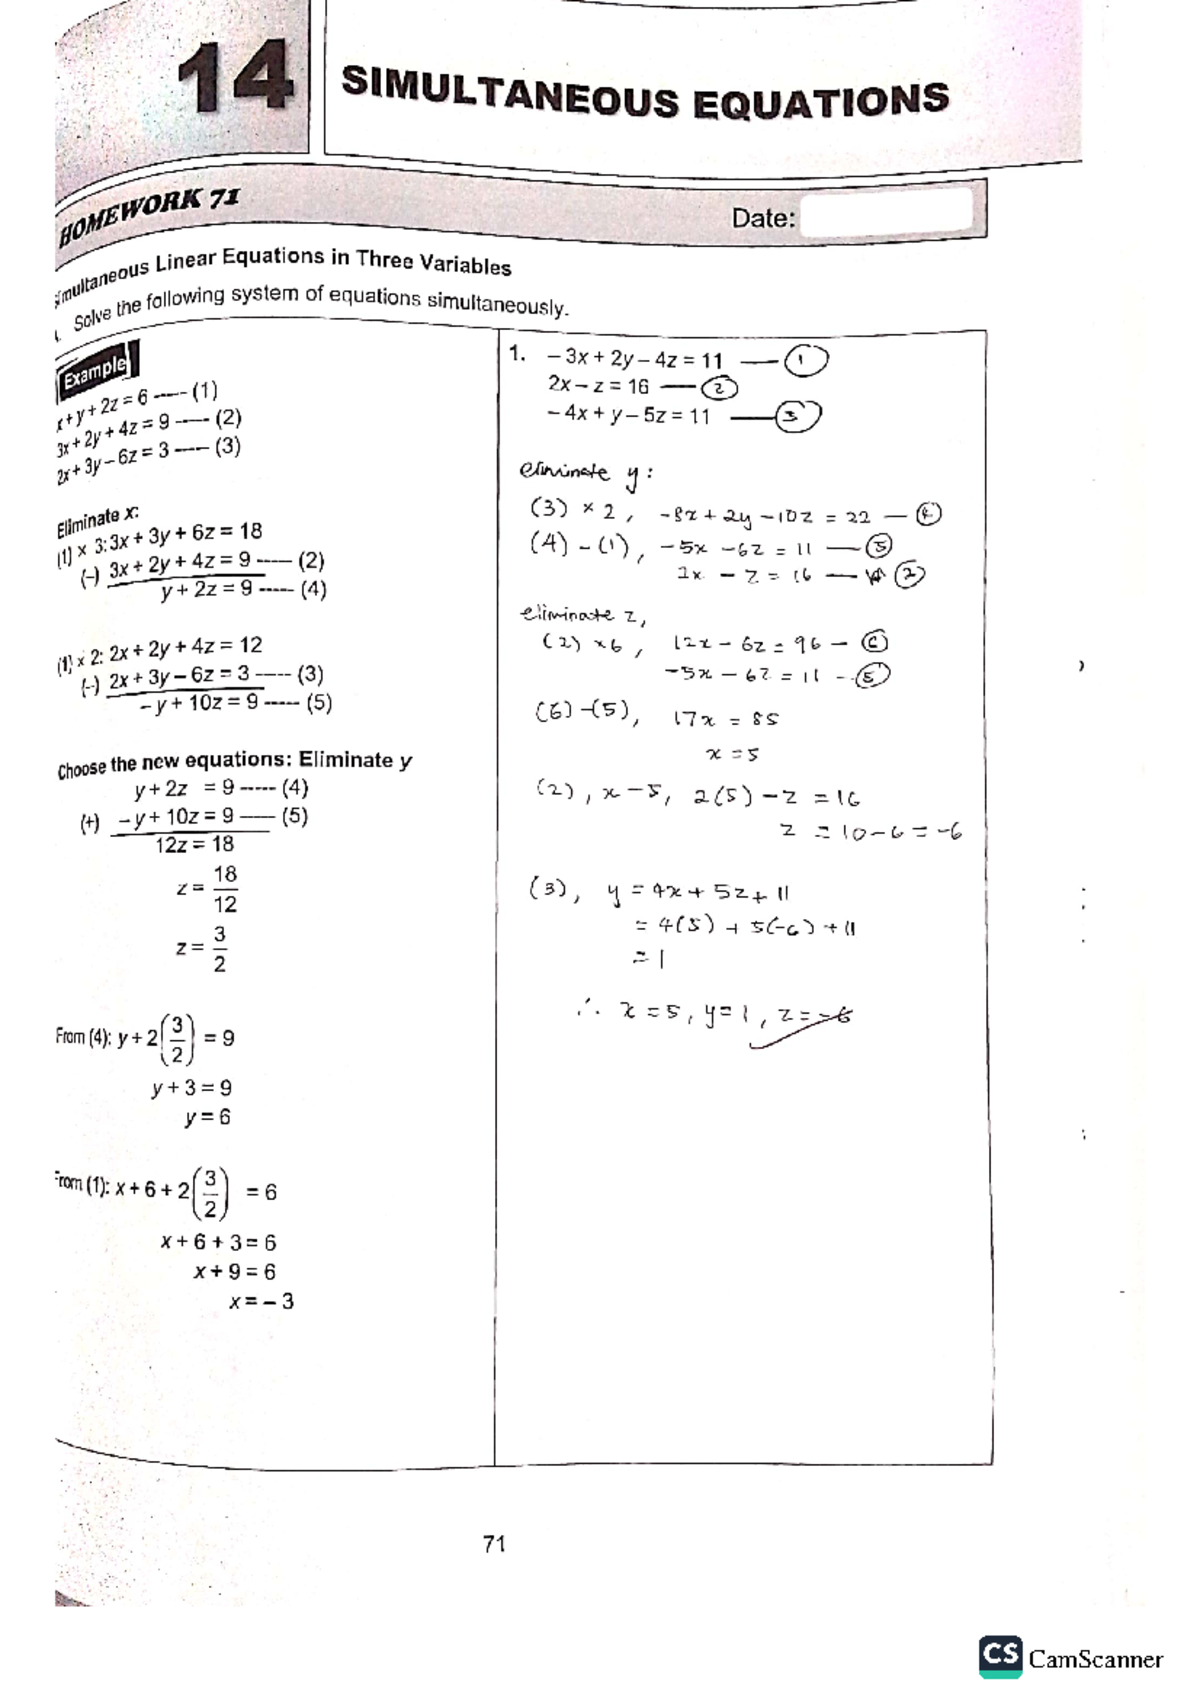 14
SIMULTANEOUS EQUATIONS
HOMEWORK 71
Date:
Simultaneous Linear Equations in Three Variables
Solve the following system of equations simultaneously.
Example
x + y + 2z = 6 ----- (1)
3x + 2y + 4z = 9 ----- (2)
2x + 3y – 6z = 3 ----- (3)
Eliminate x:
(1) × 3: 3x + 3y + 6z = 18
(–) 3x + 2y + 4z = 9 ----- (2)
y + 2z = 9 ----- (4)
(1) × 2: 2x + 2y + 4z = 12
(–) 2x + 3y – 6z = 3 ----- (3)
– y + 10z = 9 ----- (5)
Choose the new equations: Eliminate y
y + 2z = 9 ----- (4)
(+) – y + 10z = 9 ----- (5)
12z = 18
z = 18/12
z = 3/2
From (4): y + 2(3/2) = 9
y + 3 = 9
y = 6
From (1): x + 6 + 2(3/2) = 6
x + 6 + 3 = 6
x + 9 = 6
x = – 3
1. – 3x + 2y – 4z = 11 — ①
2x – z = 16 — ②
– 4x + y – 5z = 11 — ③
eliminate y:
(3) × 2, -8x + 2y - 10z = 22 — ④
(4) - (1), -5x - 6z = 11 — ⑤
2x - z = 16 — ②
eliminate z,
(2) × 6, 12x - 6z = 96 - ⑥
-5x - 6z = 11 - ⑤
(6) - (5), 17x = 85
x = 5
(2), x = 5, 2(5) - z = 16
z = 10 - 6 = -6
(3), y = 4x + 5z + 11
= 4(5) + 5(-6) + 11
= 1
∴ x = 5, y = 1, z = -6
71
CS CamScanner